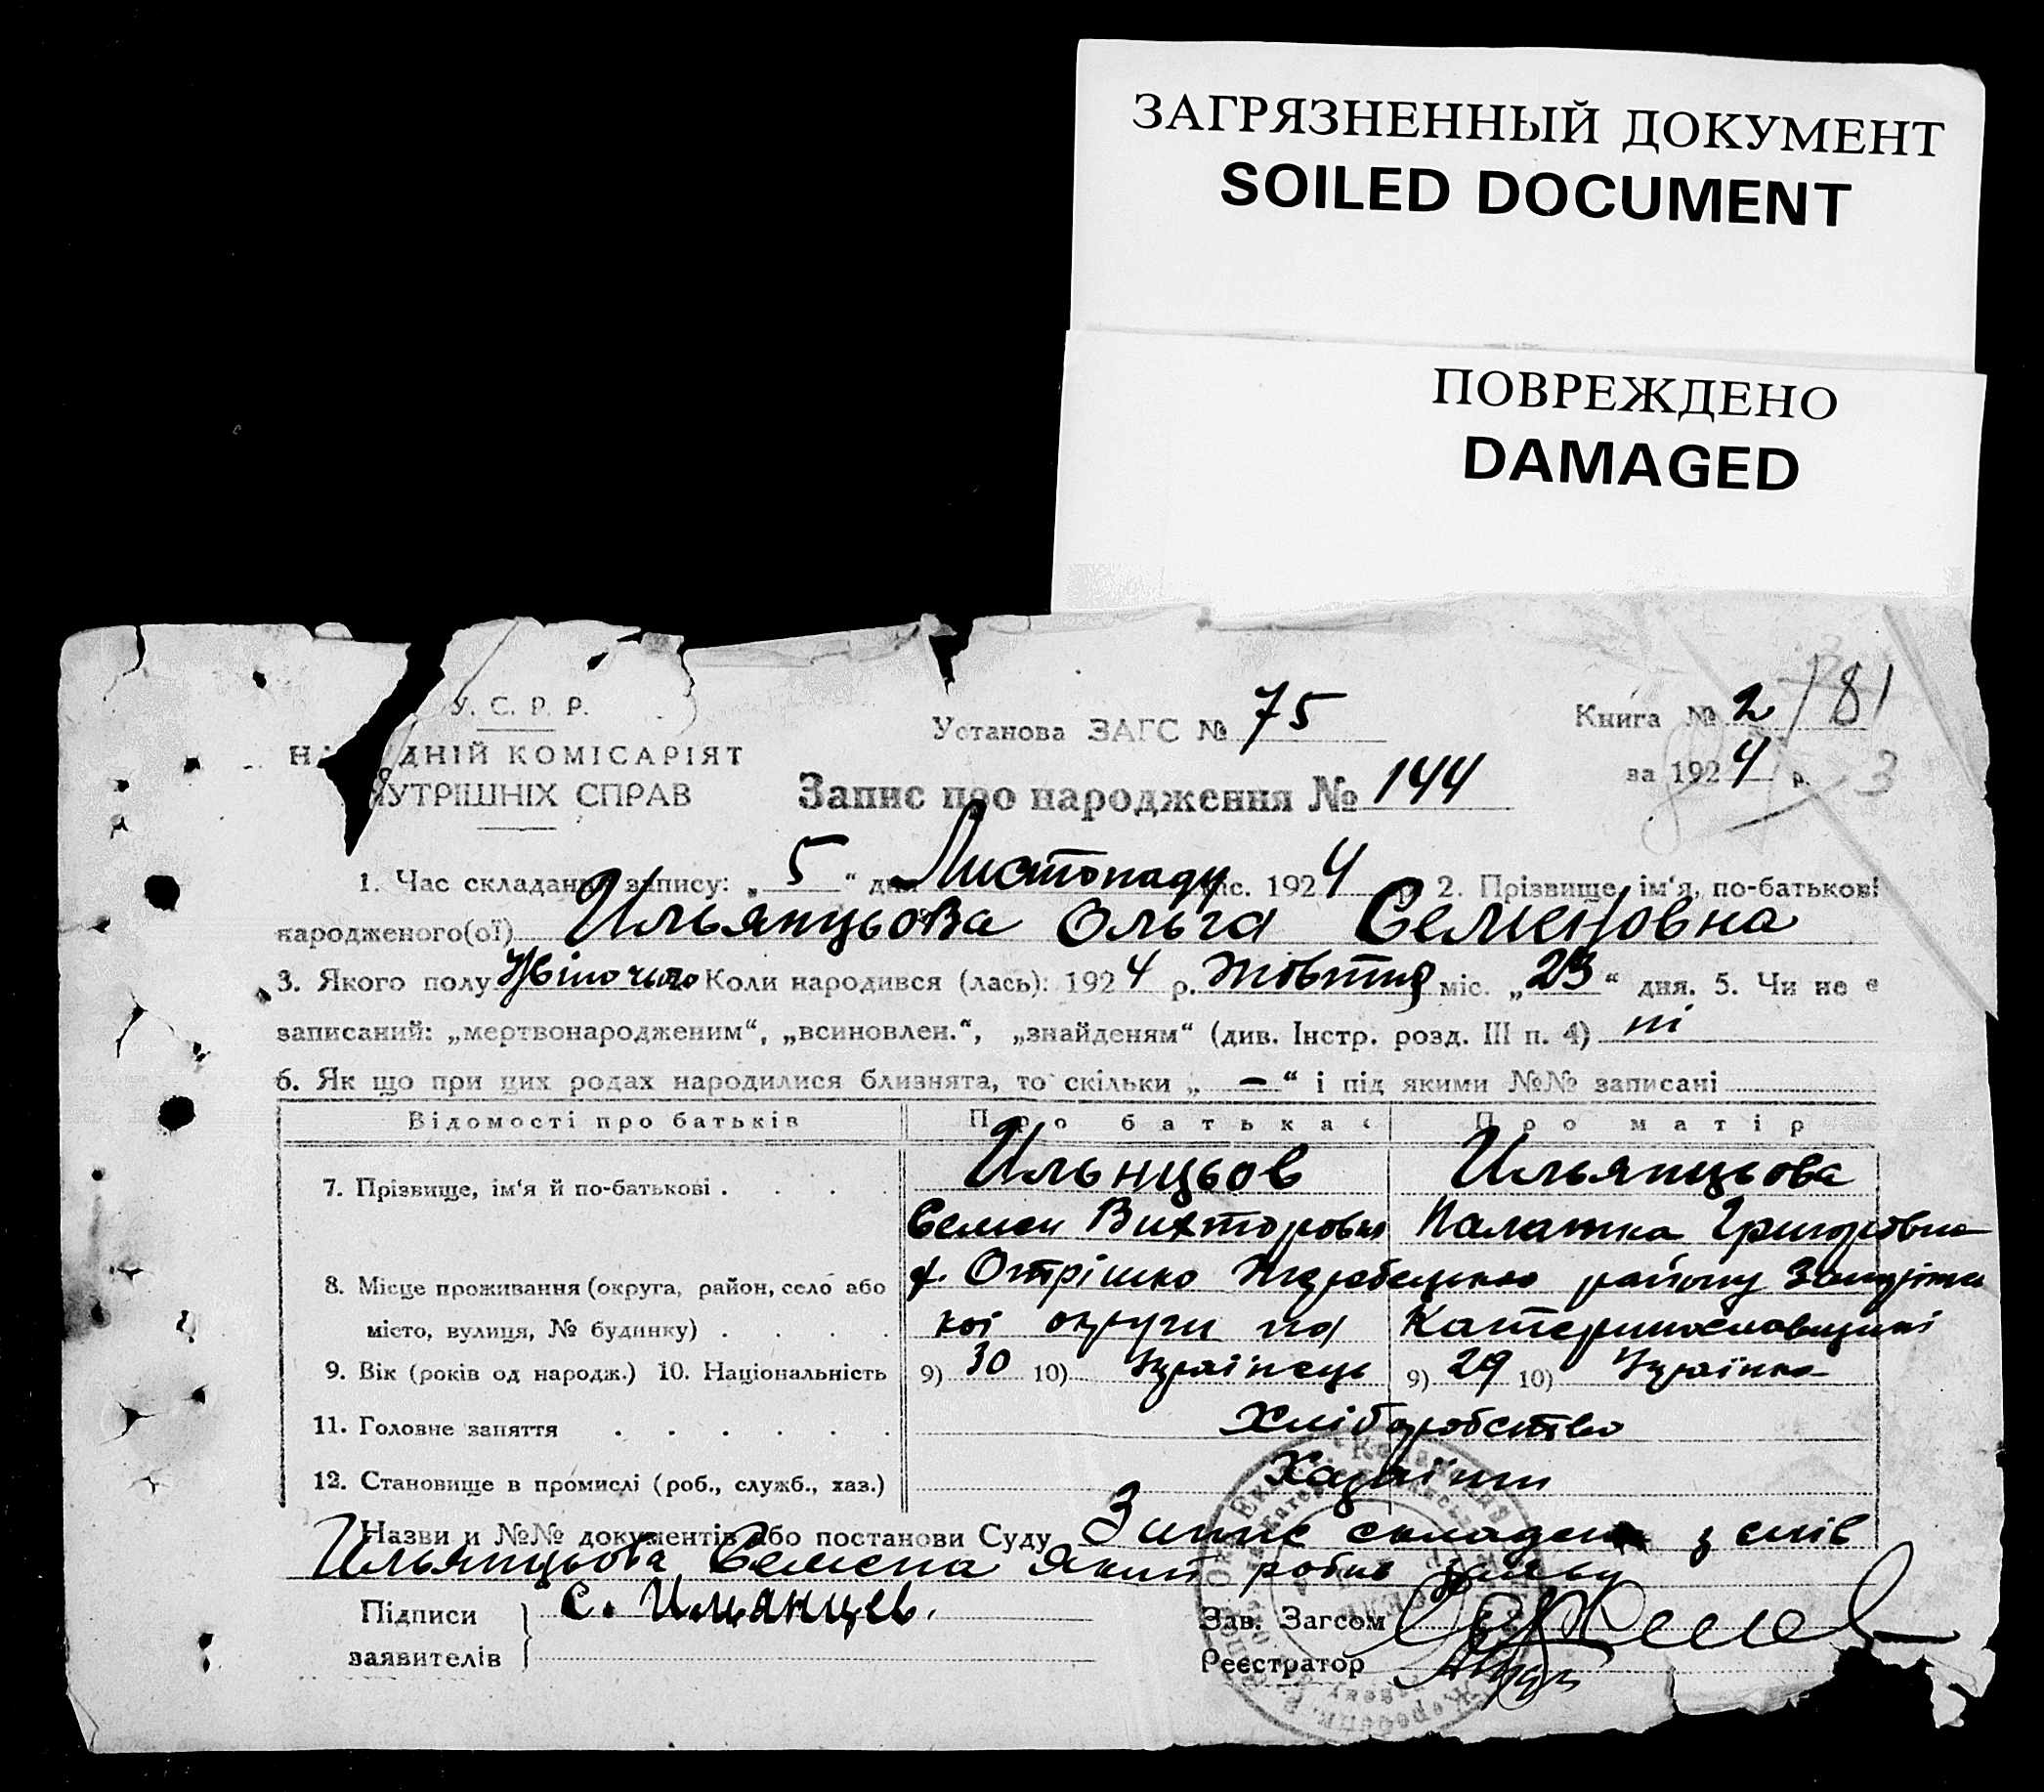 ЗАГРЯЗНЕННЫЙ ДОКУМЕНТ
SOILED DOCUMENT
ПОВРЕЖДЕНО
DAMAGED
У. С. Р. Р.
ДНІЙ КОМІСАРІЯТ
УТРІШНІХ СПРАВ
Установа ЗАГС № 75
Книга № 2 / 81
за 1924 р. 3
Запис про народження № 144
1. Час складання запису: „ 5 “ дня Листопаду міс. 1924 2. Прізвище, ім‘я, по-батькові
народженого(ої) Ильянцьова Ольга Семеновна
3. Якого полу Жіночого Коли народився (лась): 1924 р. Жовтня міс. „ 23 “ дня. 5. Чи не є
записаний: „мертвонародженим“, „всиновлен.“, „знайденям“ (див. Інстр. розд. III п. 4) ні
6. Як що при цих родах народилися близнята, то скільки „ — “ і під якими №№ записані
Відомості про батьків Про батька Про матір
7. Прізвище, ім‘я й по-батькові . . . . Ильнцьов Ильянцьова
Семен Вихторович Палажка Григоровна
8. Місце проживання (округа, район, село або
місто, вулиця, № будинку) . . . . кої округи на Катеринославщині
9. Вік (років од народж.) 10. Національність 9) 30 10) Українець 9) 29 10) Українка
11. Головне заняття . . . . . . Хліборобство
12. Становище в промислі (роб., служб., хаз.) Хазяїни
Назви и №№ документів або постанови Суду Запис складен з слів
Ильянцьова Семена який робив заяву
Підписи С. Ильянцев.
заявителів
Зав. Загсом
Реєстратор